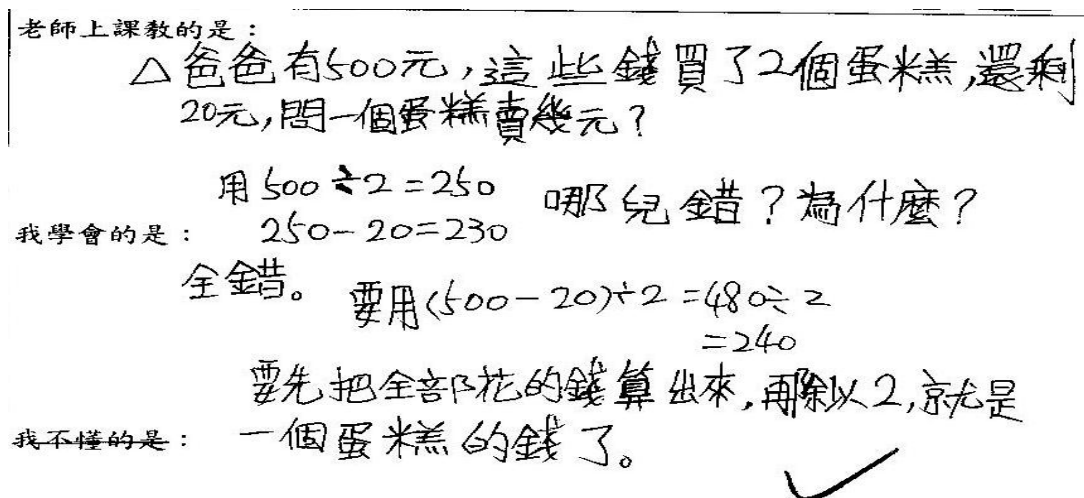 老師上課教的是：
△爸爸有500元，這些錢買了2個蛋糕，還剩
20元，問一個蛋糕賣幾元？
用500÷2=250
250-20=230
哪兒錯？為什麼？
我學會的是：
全錯。要用(500-20)÷2=480÷2
=240
要先把全部花的錢算出來，再除以2，就是
一個蛋糕的錢了。
我不懂的是：